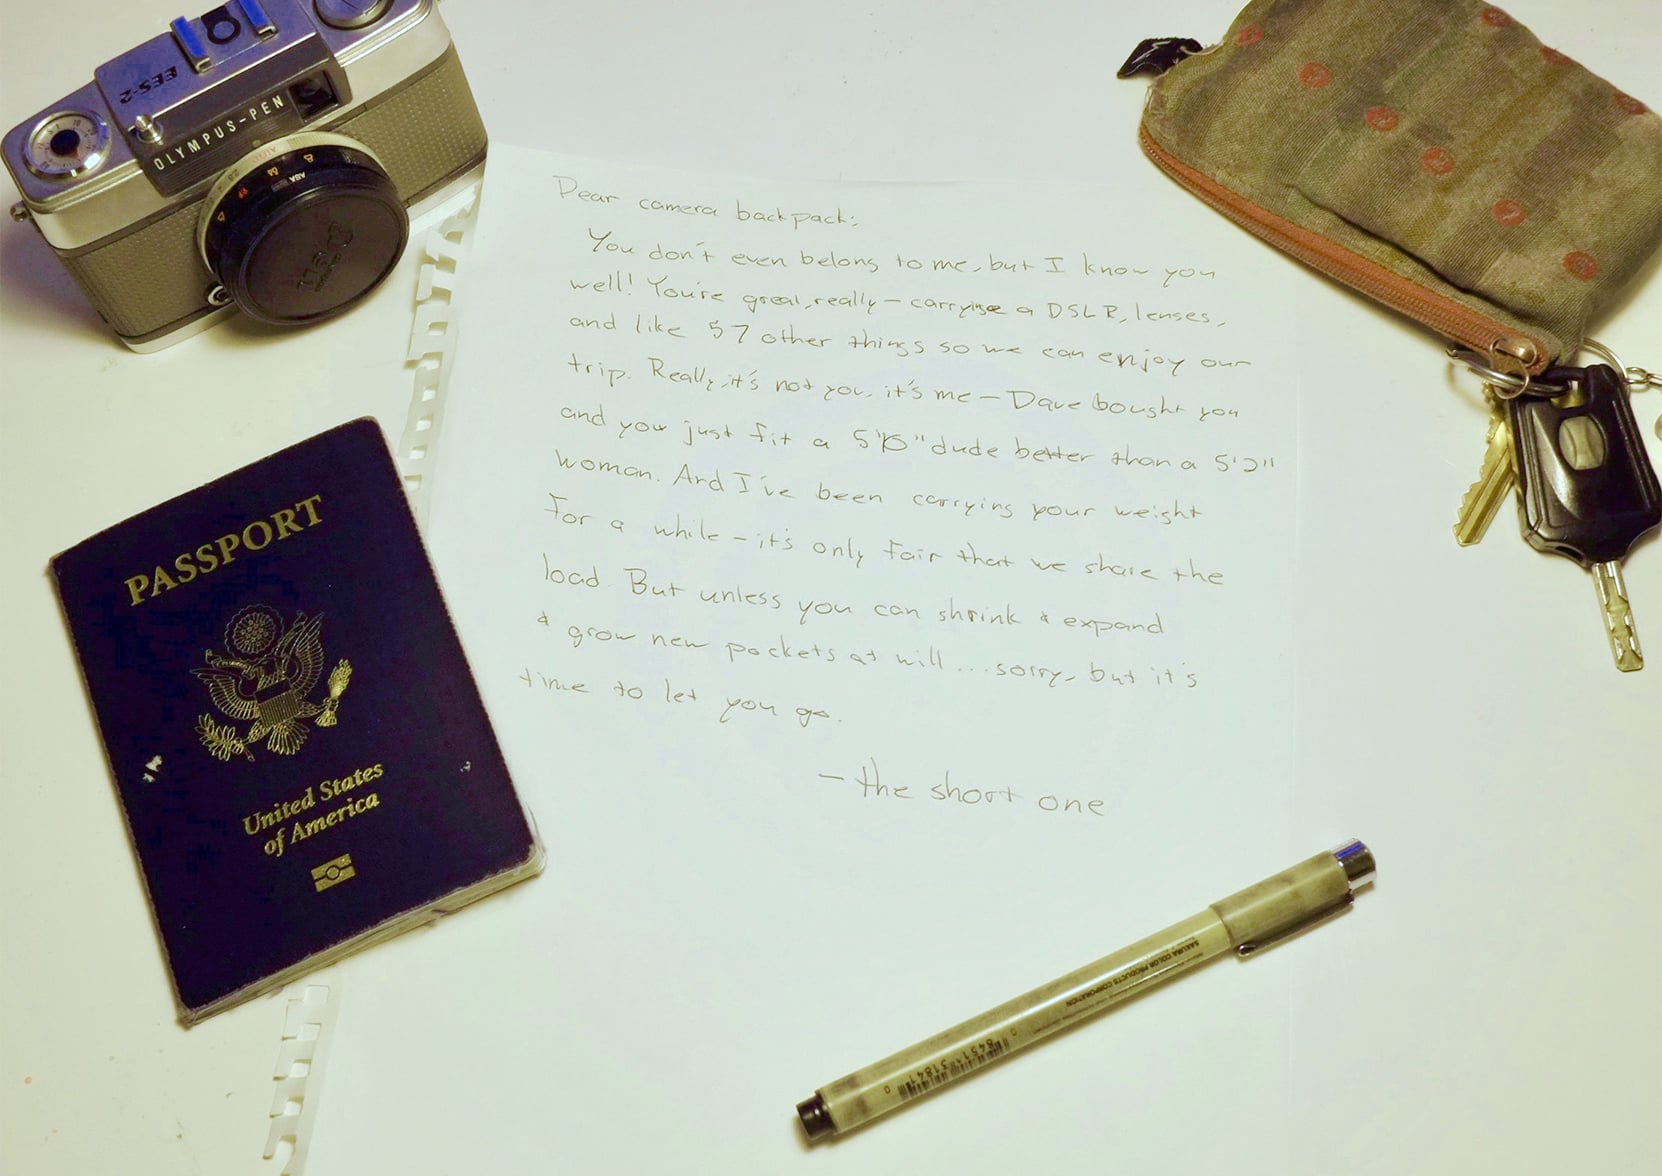 EES-2
OLYMPUS-PEN
AUTO
ASA
Dear camera backpack:
You don't even belong to me, but I know you
well! You're great, really – carrying a DSLR, lenses,
and like 57 other things so we can enjoy our
trip. Really, it's not you, it's me – Dave bought you
and you just fit a dude better than a 5'2"
woman. And I've been carrying your weight
for a while – it's only fair that we share the
load. But unless you can shrink & expand
& grow new pockets at will ... sorry, but it's
time to let you go.
– the short one
PASSPORT
United States
of America
SAKURA COLOR PRODUCTS CORPORATION